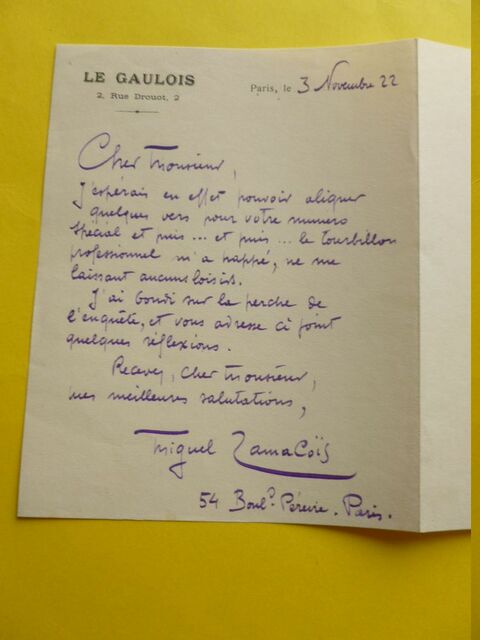 LE GAULOIS
2, Rue Drouot, 2
Paris, le 3 Novembre 22
Cher Monsieur,
J'espérais en effet pouvoir aligner
quelques vers pour votre numero
spécial et puis ... et puis ... le tourbillon
professionnel m'a happé, ne me
laissant aucuns loisirs.
J'ai bondi sur la perche de
l'enquête, et vous adresse ci joint
quelques réflexions.
Recevez, cher Monsieur,
mes meilleures salutations,
Miguel Zamacoïs
54 Boul.d Péreire. Paris.